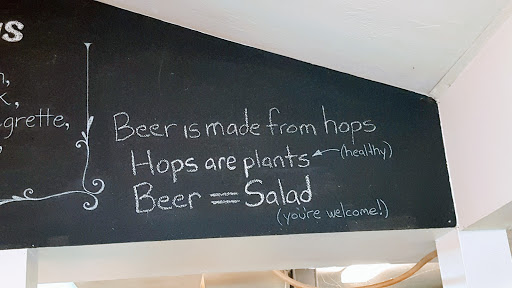 Beer is made from hops
Hops are plants (healthy)
Beer = Salad
(you're welcome!)
grette,